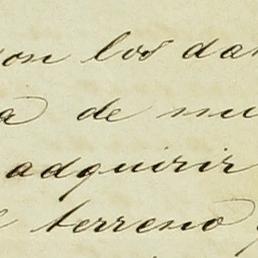 con los da
a de mu
adquirir
terreno